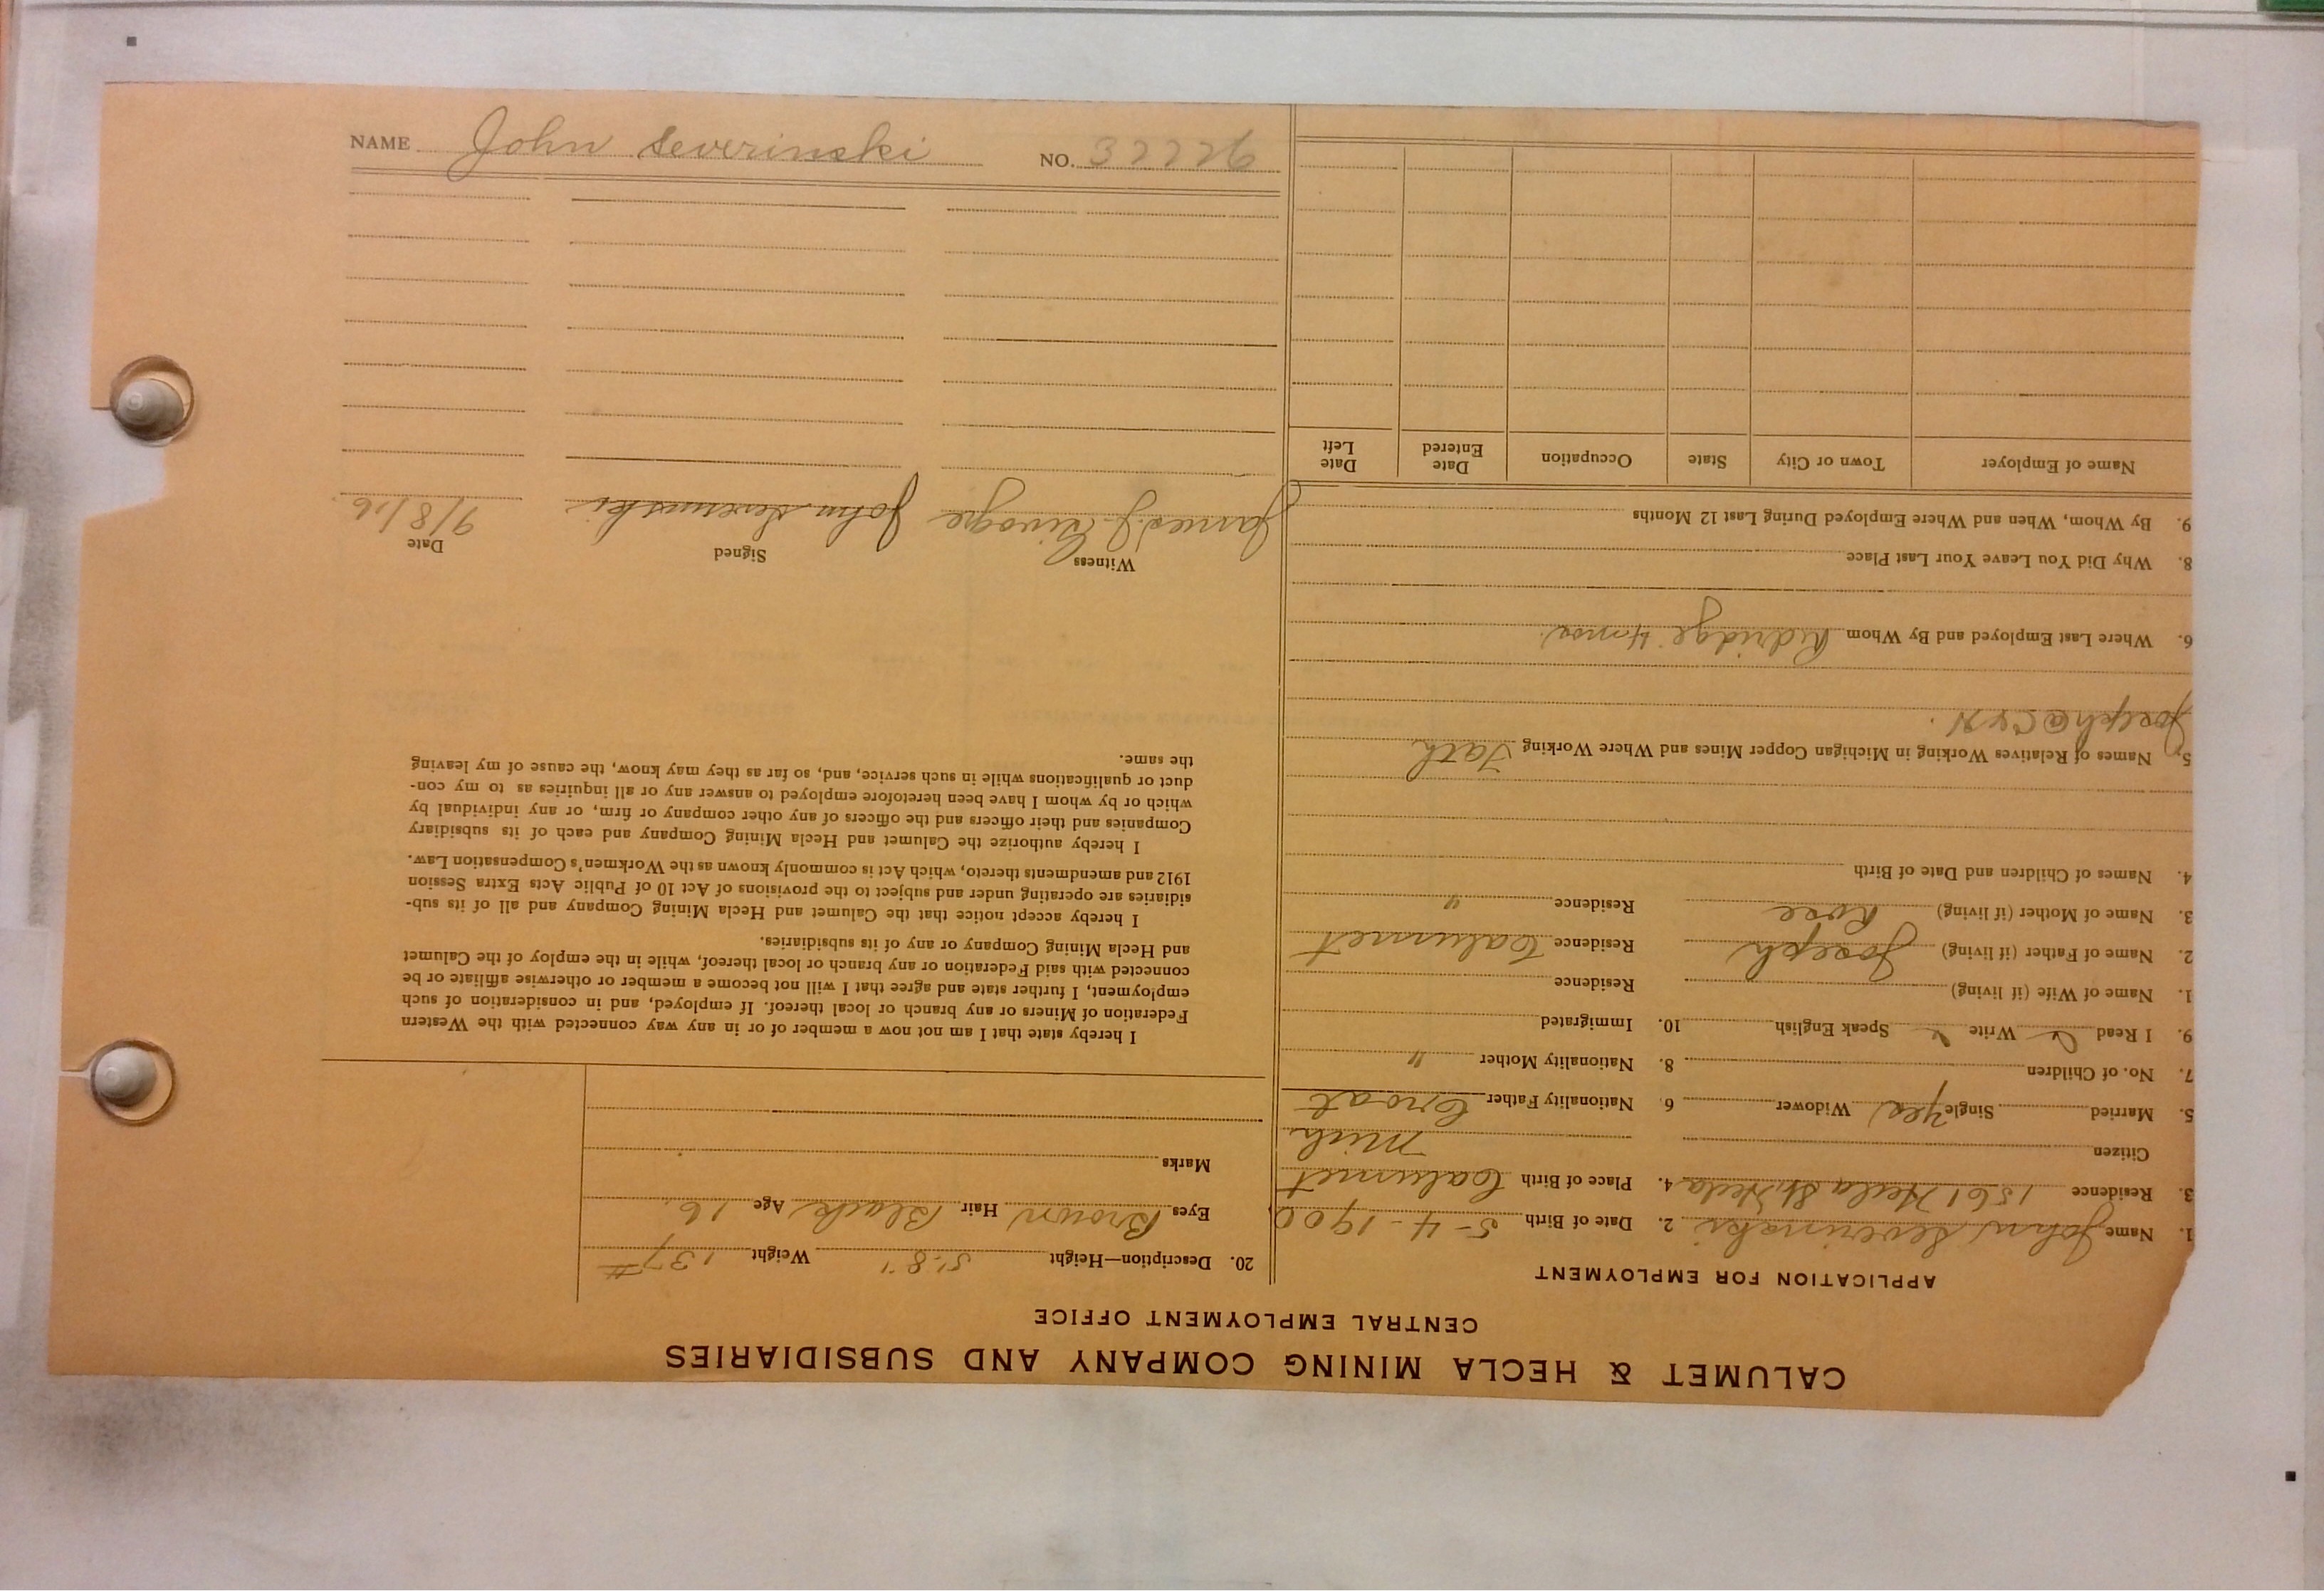 NAME John Severinski NO. 32226
CALUMET & HECLA MINING COMPANY AND SUBSIDIARIES
CENTRAL EMPLOYMENT OFFICE
APPLICATION FOR EMPLOYMENT
1. Name John Severinski 2. Date of Birth 5-4-1900
3. Residence 1561 Hecla St. Hecla 4. Place of Birth Calumet
Citizen Mich
5. Married Single Yes Widower 6. Nationality Father Croat
7. No. of Children 8. Nationality Mother "
9. I Read ✓ Write ✓ Speak English 10. Immigrated
1. Name of Wife (if living) Residence
2. Name of Father (if living) Joseph Residence Calumet
3. Name of Mother (if living) Rose Residence "
4. Names of Children and Date of Birth
5. Names of Relatives Working in Michigan Copper Mines and Where Working Fath
Joseph @ C & H.
6. Where Last Employed and By Whom 4 mos.
8. Why Did You Leave Your Last Place
9. By Whom, When and Where Employed During Last 12 Months
Name of Employer Town or City State Occupation Date Entered Date Left
20. Description—Height 5'8" Weight 137#
Eyes Brown Hair Black Age 16
Marks
I hereby state that I am not now a member of or in any way connected with the Western
Federation of Miners or any branch or local thereof. If employed, and in consideration of such
employment, I further state and agree that I will not become a member or otherwise affiliate or be
connected with said Federation or any branch or local thereof, while in the employ of the Calumet
and Hecla Mining Company or any of its subsidiaries.
I hereby accept notice that the Calumet and Hecla Mining Company and all of its sub-
sidiaries are operating under and subject to the provisions of Act 10 of Public Acts Extra Session
1912 and amendments thereto, which Act is commonly known as the Workmen's Compensation Law.
I hereby authorize the Calumet and Hecla Mining Company and each of its subsidiary
Companies and their officers and the officers of any other company or firm, or any individual by
which or by whom I have been heretofore employed to answer any or all inquiries as to my con-
duct or qualifications while in such service, and, so far as they may know, the cause of my leaving
the same.
Witness Signed Date
James J. John Severinski 9/8/16